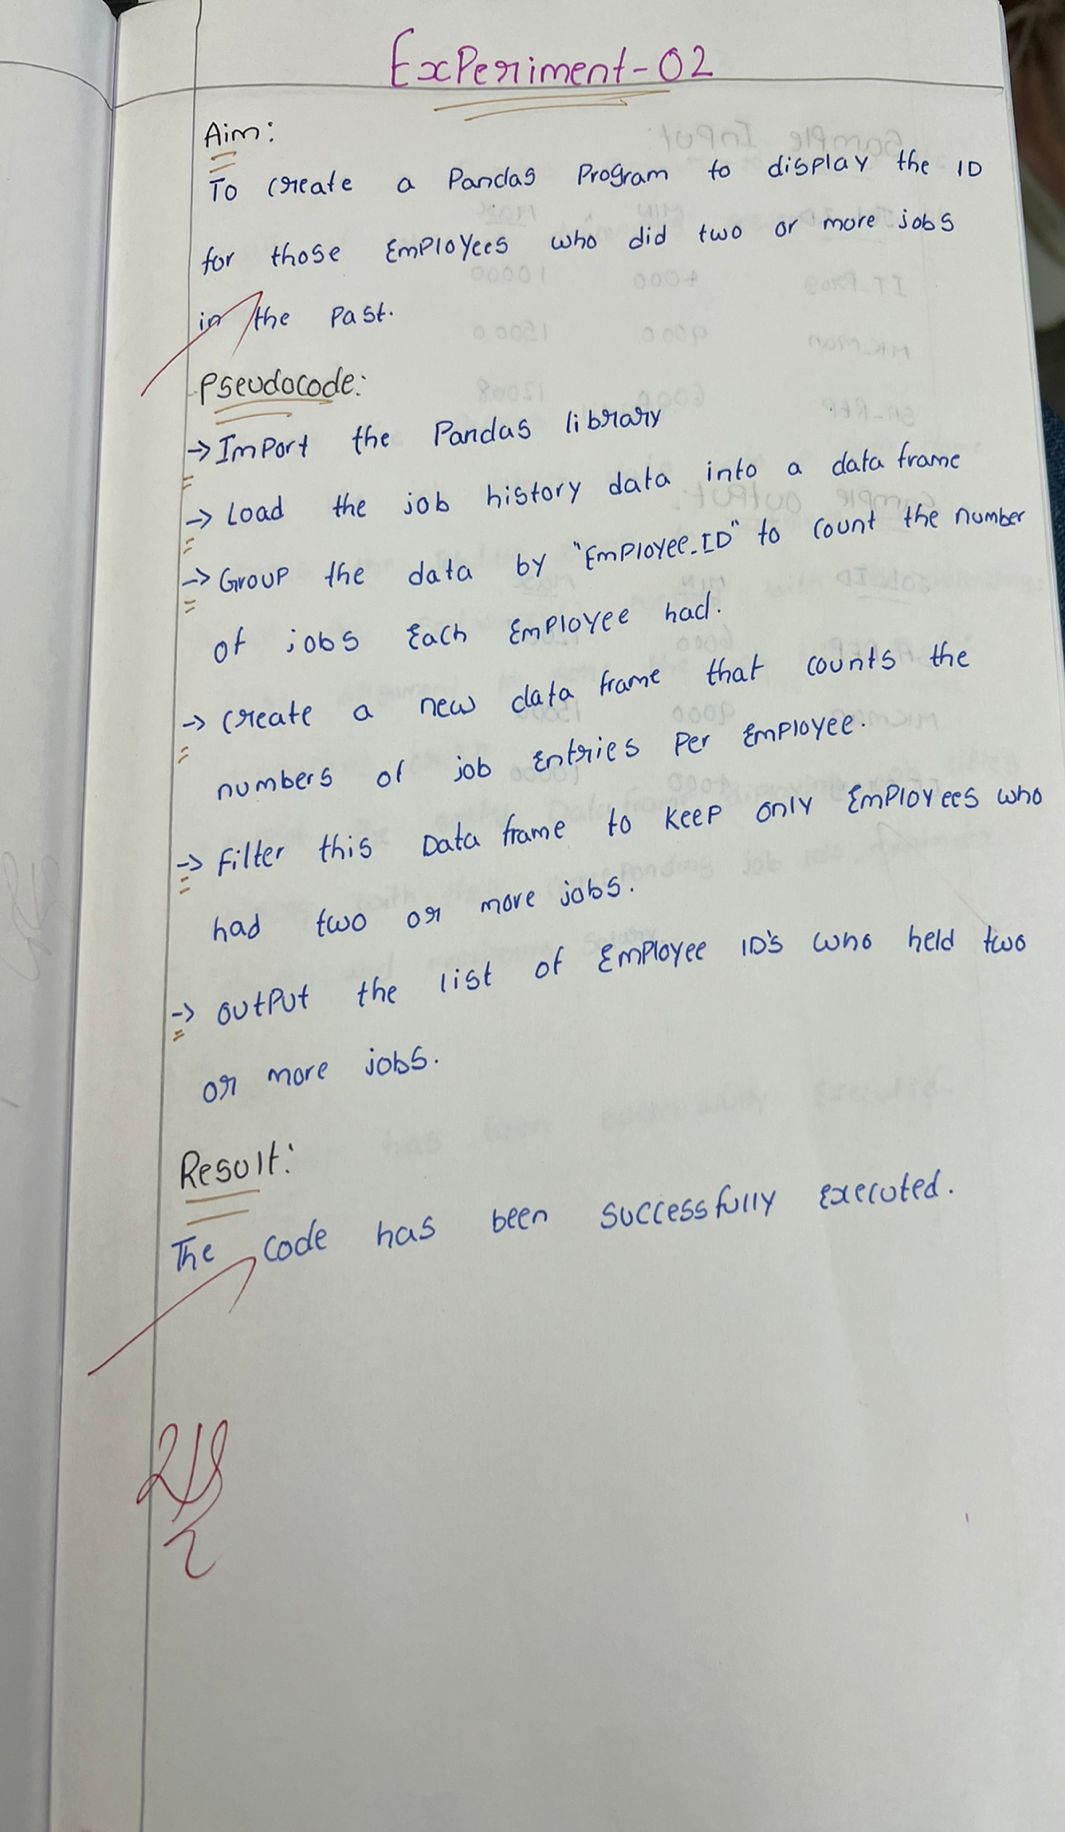 Experiment-02
Aim:
To create a Pandas Program to display the ID
for those Employees who did two or more jobs
in the Past.
Pseudocode:
→ Import the Pandas library
→ Load the job history data into a data frame
→ Group the data by "Employee_ID" to count the number
of jobs Each Employee had.
→ create a new data frame that counts the
numbers of job Entries Per Employee.
→ Filter this Data frame to keep only Employees who
had two or more jobs.
→ output the list of Employee ID's who held two
or more jobs.
Result:
The code has been successfully Executed.